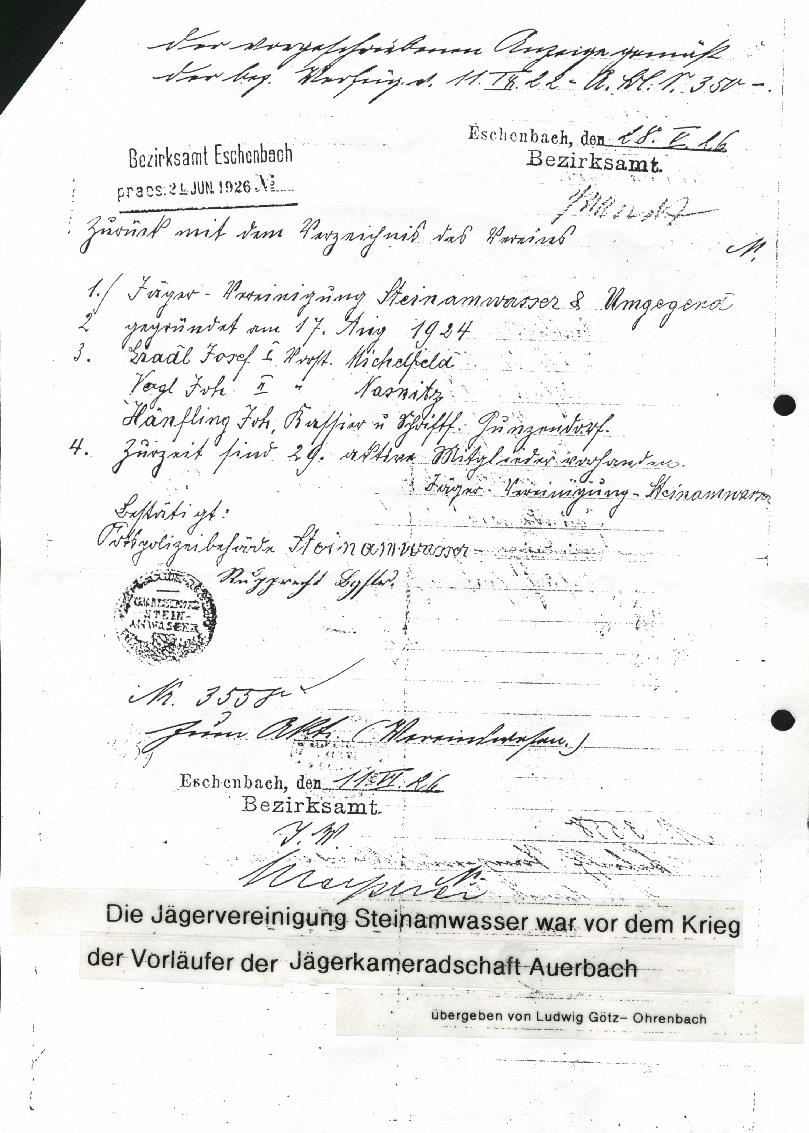 der vorgeschriebenen Anzeige gemäß
der bez. Verfüg. v. 11. IX. 22 - A. Bl. S. 350 -.
Eschenbach, den 28. V. 26
Bezirksamt.
Bezirksamt Eschenbach
praes: 2 JUN. 1926 №
Zurück mit dem Verzeichnis des Vereins
N.
1./ Jäger-Vereinigung Steinamwasser & Umgegend
2 gegründet am 17. Aug 1924
3. Josef I Vorst. Michelfeld
Vogl Joh. II " Nasnitz
Hänfling Joh, Kassier u Schriftf. Gunzendorf.
4. Zurzeit sind 29. aktive Mitglieder vorhanden.
Jäger-Vereinigung-Steinamwasser
Bestätigt:
Ortspolizeibehörde Steinamwasser
Rupprecht Bgstr.
STEIN-
AMWASSER
Nr. 3558
Zum Akt. (Vereinswesen.)
Eschenbach, den 11. VI. 26
Bezirksamt.
J. V.
Die Jägervereinigung Steinamwasser war vor dem Krieg
der Vorläufer der Jägerkameradschaft Auerbach
übergeben von Ludwig Götz– Ohrenbach